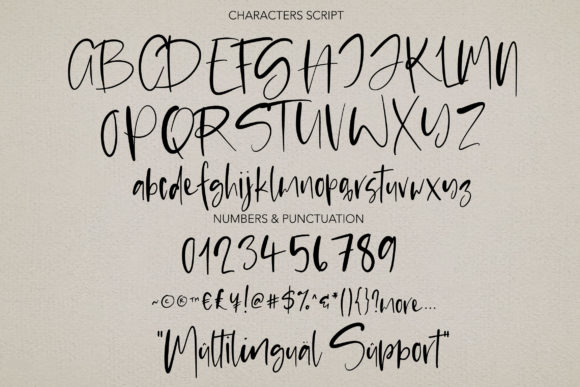 CHARACTERS SCRIPT
ABCDEFGHIJKLMN
OPQRSTUVWXYZ
abcdefghijklmnopqrstuvwxyz
NUMBERS & PUNCTUATION
0123456789
~©®™€£¥!@#$%^&*(){}?more...
"Mültilingüäl Süppört"